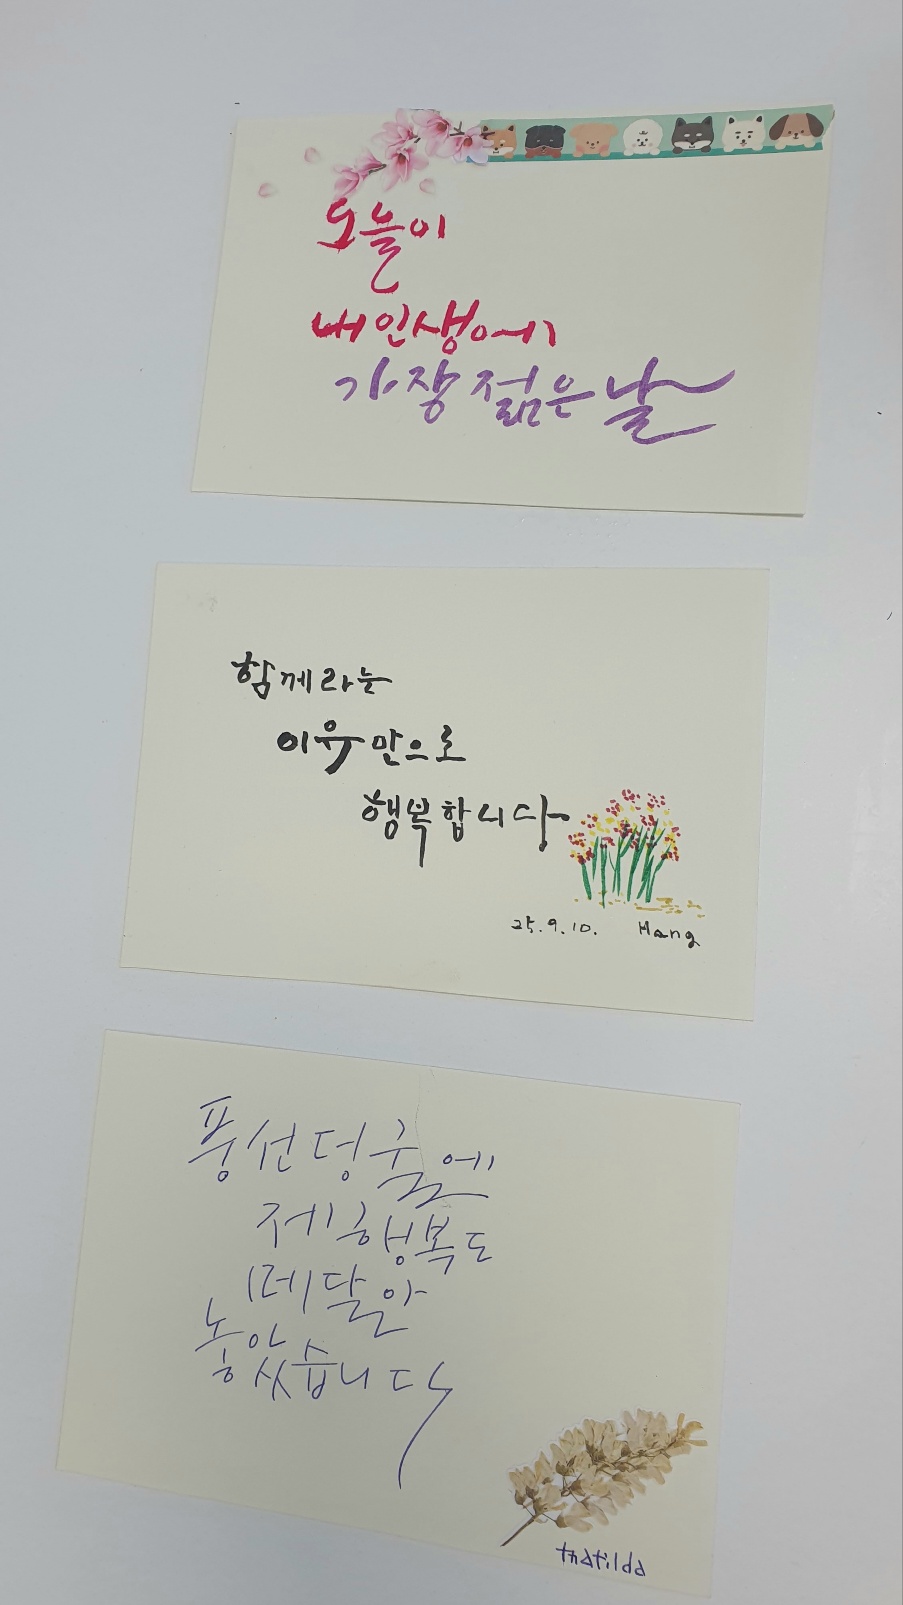 오늘이
내 인생에
가장 젊은 날
함께라는
이유만으로
행복합니다
25.9.10. Hang
풍선덩쿨에
제 행복도
매달아
놓았습니다
thatilda